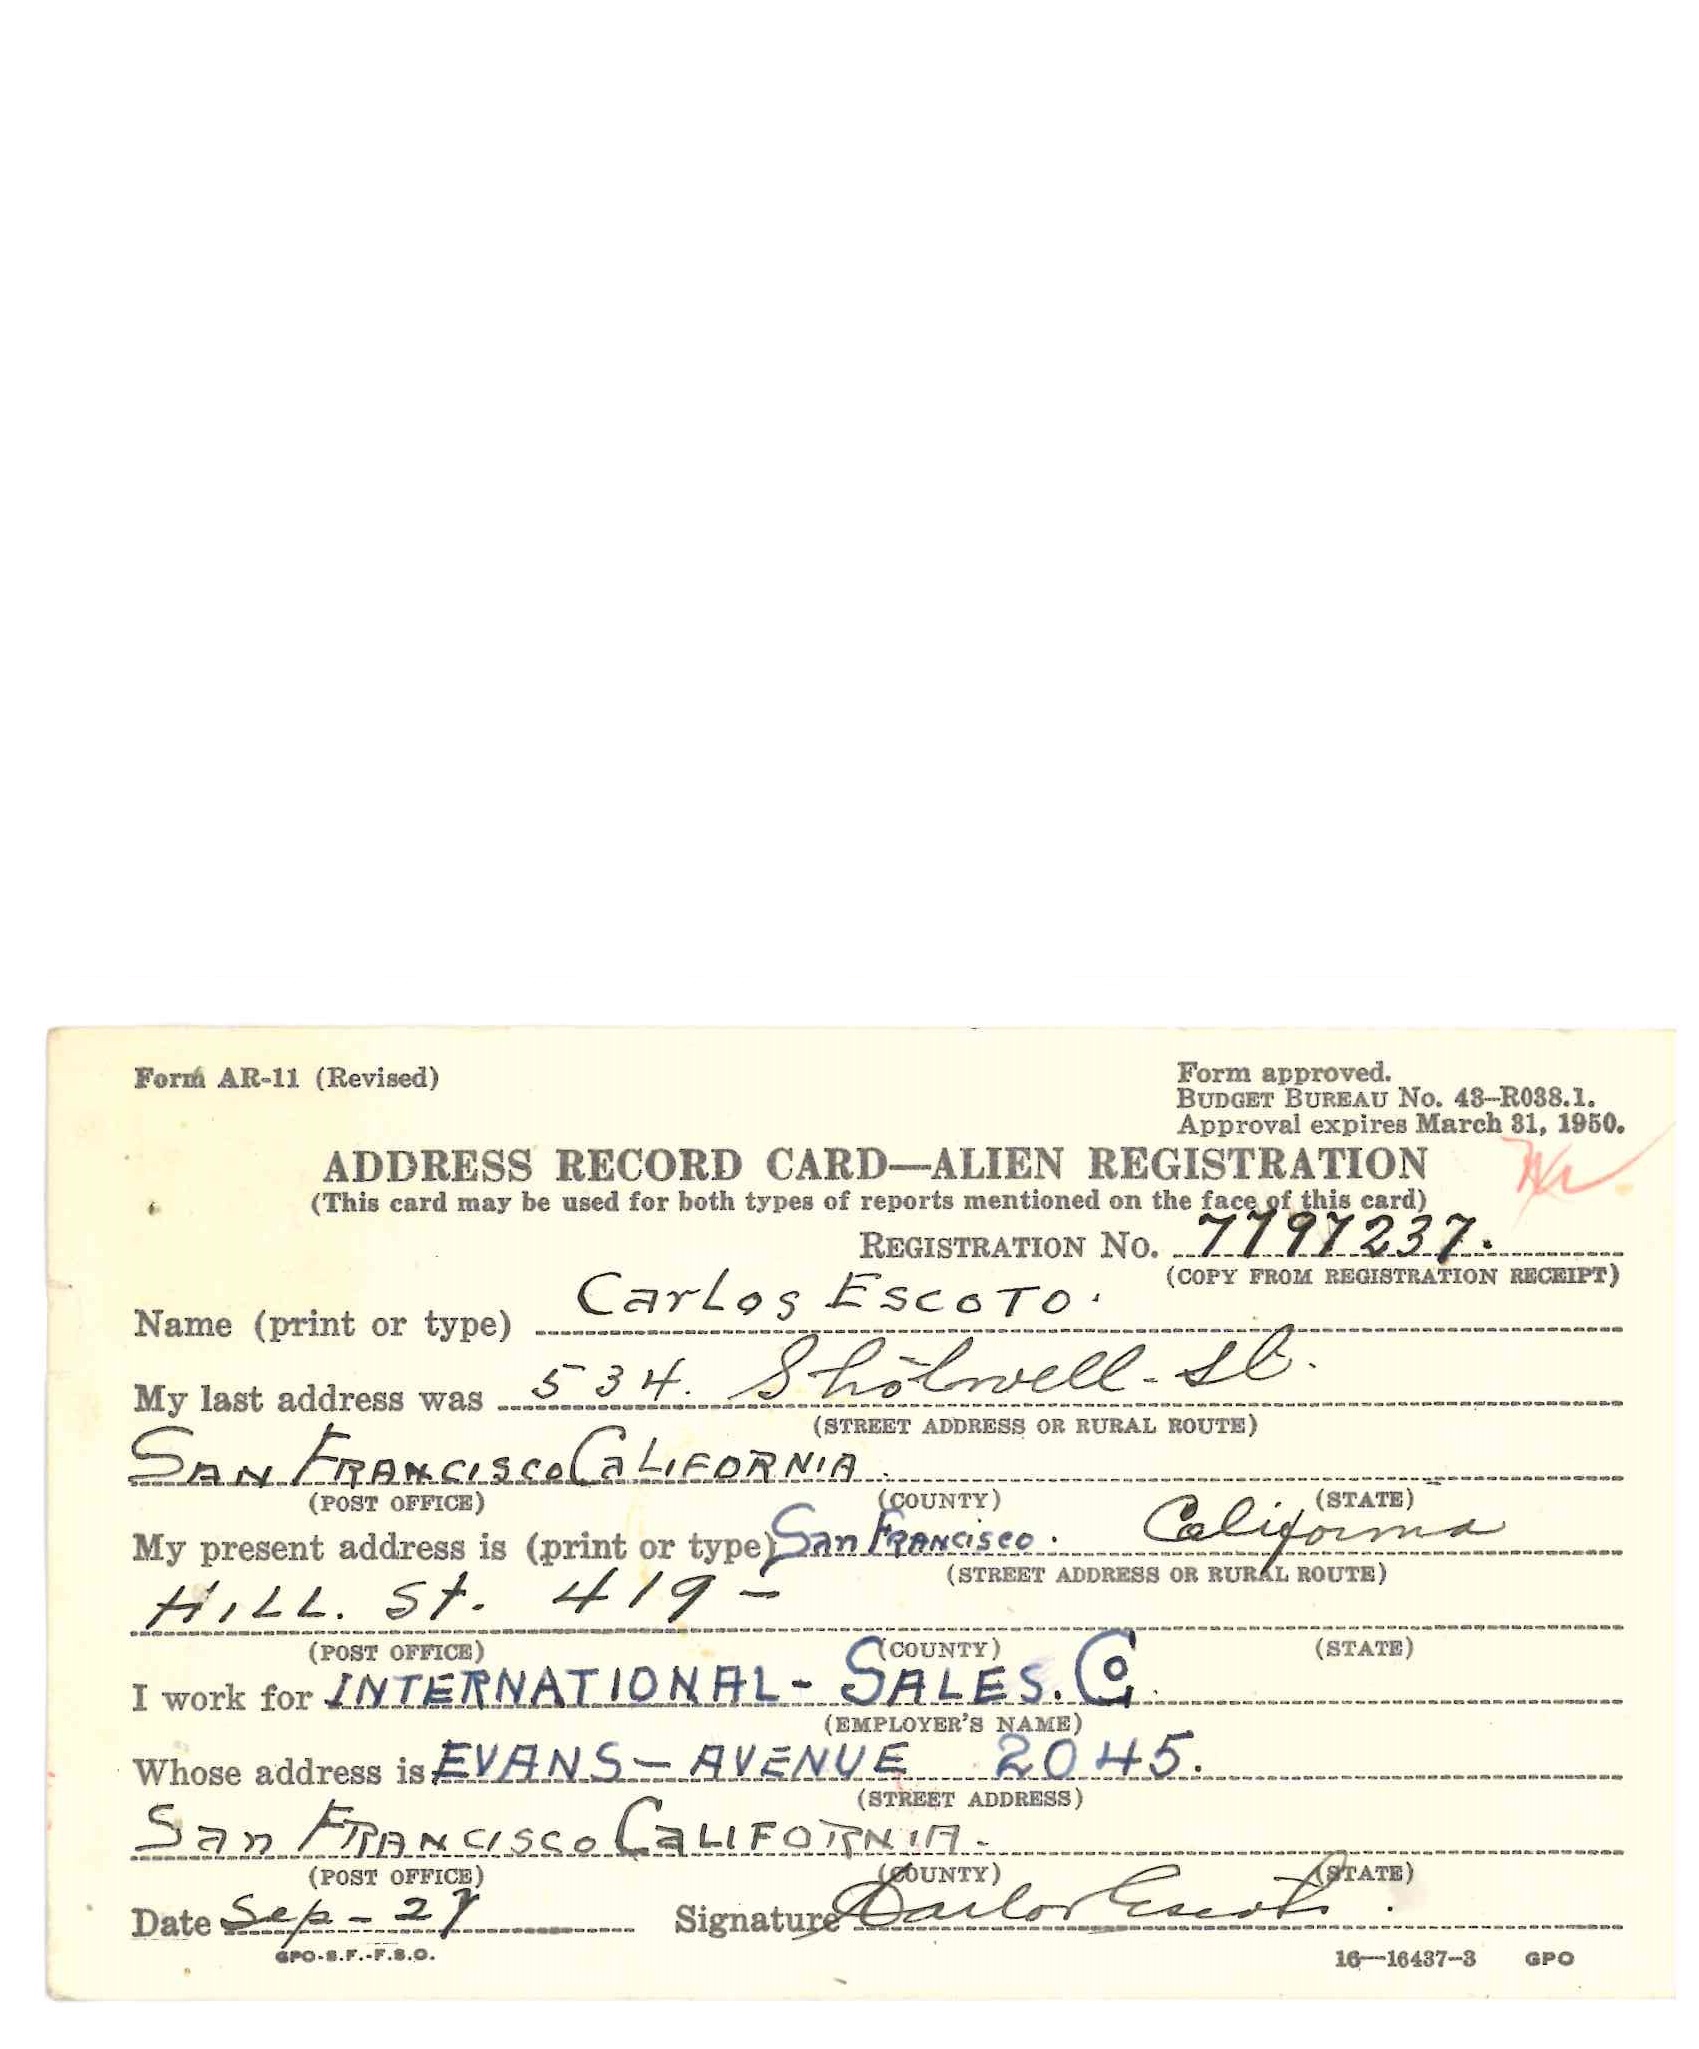 Form AR-11 (Revised)
Form approved.
BUDGET BUREAU No. 43-R038.1.
Approval expires March 31, 1950.
ADDRESS RECORD CARD—ALIEN REGISTRATION
(This card may be used for both types of reports mentioned on the face of this card)
REGISTRATION No. 7797237.
(COPY FROM REGISTRATION RECEIPT)
Name (print or type) Carlos Escoto.
My last address was 534. Shotwell-St.
(STREET ADDRESS OR RURAL ROUTE)
SAN FRANCISCO CALIFORNIA
(POST OFFICE) (COUNTY) (STATE)
My present address is (print or type) San Francisco. California
(STREET ADDRESS OR RURAL ROUTE)
HILL. St. 419-
(POST OFFICE) (COUNTY) (STATE)
I work for INTERNATIONAL- SALES. Co.
(EMPLOYER'S NAME)
Whose address is EVANS- AVENUE 2045.
(STREET ADDRESS)
San FRANCISCO CALIFORNIA.
(POST OFFICE) (COUNTY) (STATE)
Date Sep-27 Signature Carlos Escoto.
GPO-S.F.-F.S.O. 16—16437-3 GPO